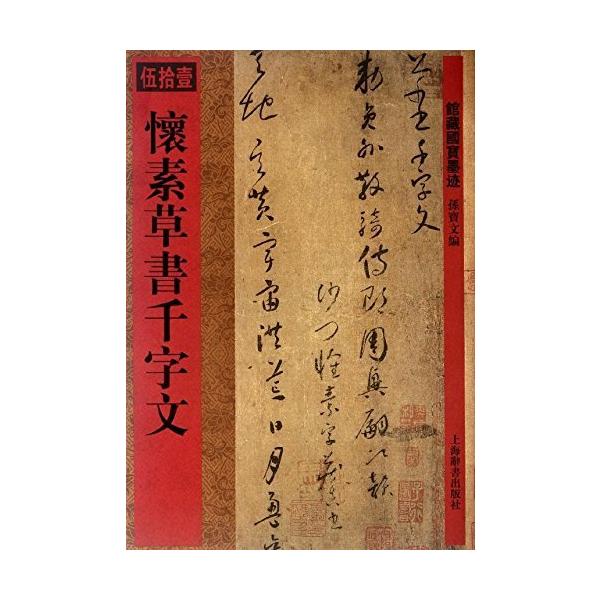 伍拾壹
懷素草書千字文
館藏國寶墨迹
孫寶文編
上海辭書出版社
千字文
勅員外散騎侍郎周興嗣次韻
沙門懷素字藏真
天地玄黃宇宙洪荒日月盈